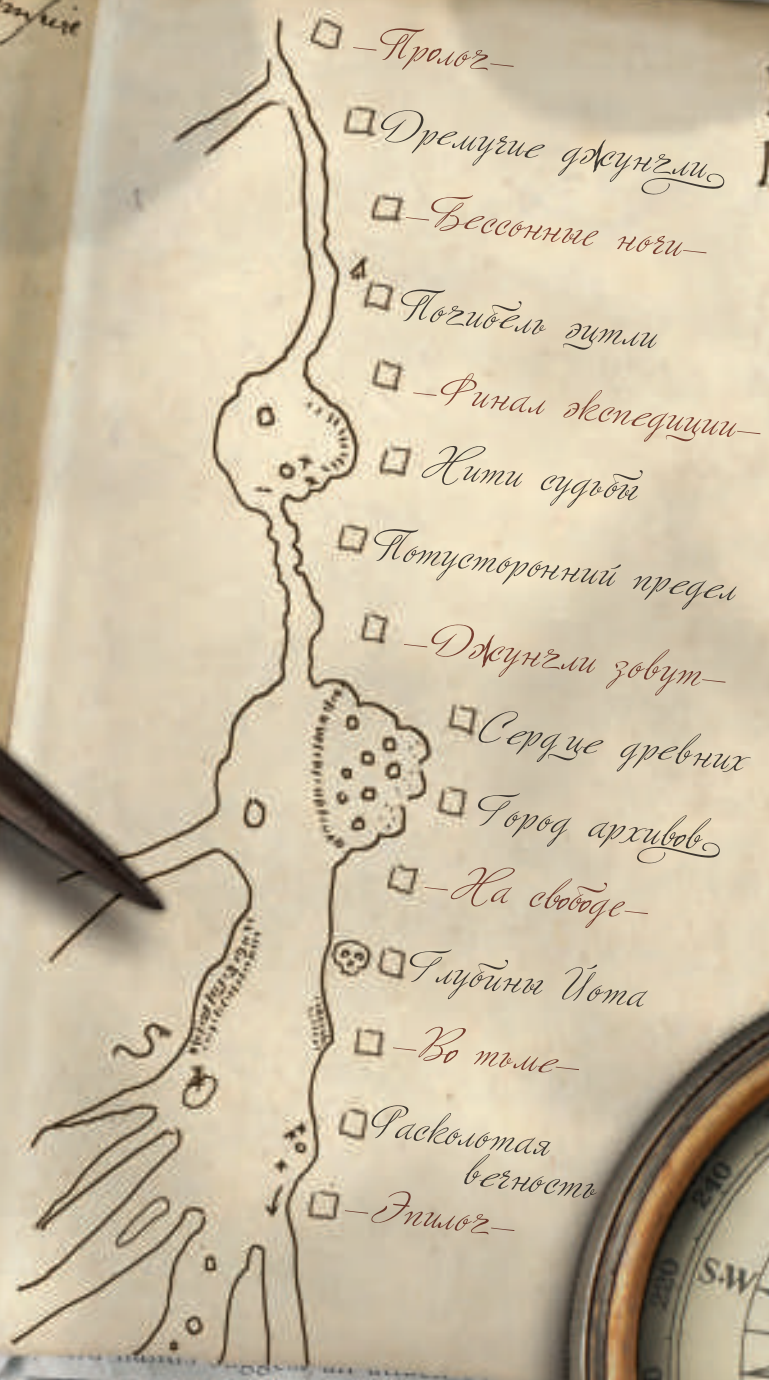 —Пролог—
Дремучие джунгли
—Бессонные ночи—
Погибель эцтли
—Финал экспедиции—
Нити судьбы
Потусторонний предел
—Джунгли зовут—
Сердце древних
Город архивов
—На свободе—
Глубины Йота
—Во тьме—
Расколотая
вечность
—Эпилог—
240
S.W